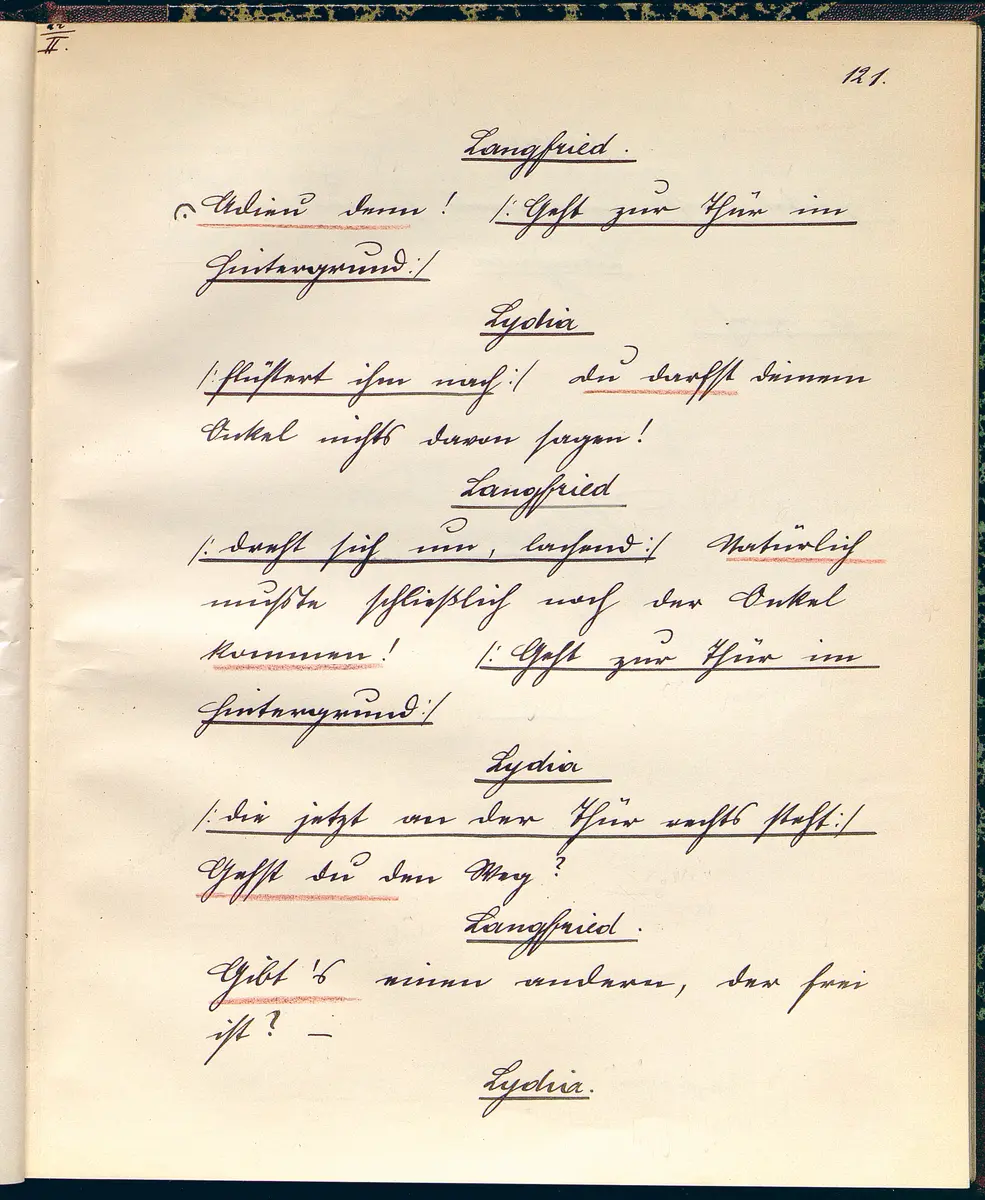 II.
121.
Langfried.
Adieu denn! /: Geht zur Thür im
Hintergrund :/
Lydia
/: flüstert ihm nach :/ Du darfst deinem
Onkel nichts davon sagen!
Langfried
/: dreht sich um, lachend :/ Natürlich
mußte schließlich noch der Onkel
kommen! /: Geht zur Thür im
Hintergrund :/
Lydia
/: die jetzt an der Thür rechts steht :/
Gehst du den Weg?
Langfried.
Gibt's einen andern, der frei
ist? —
Lydia.